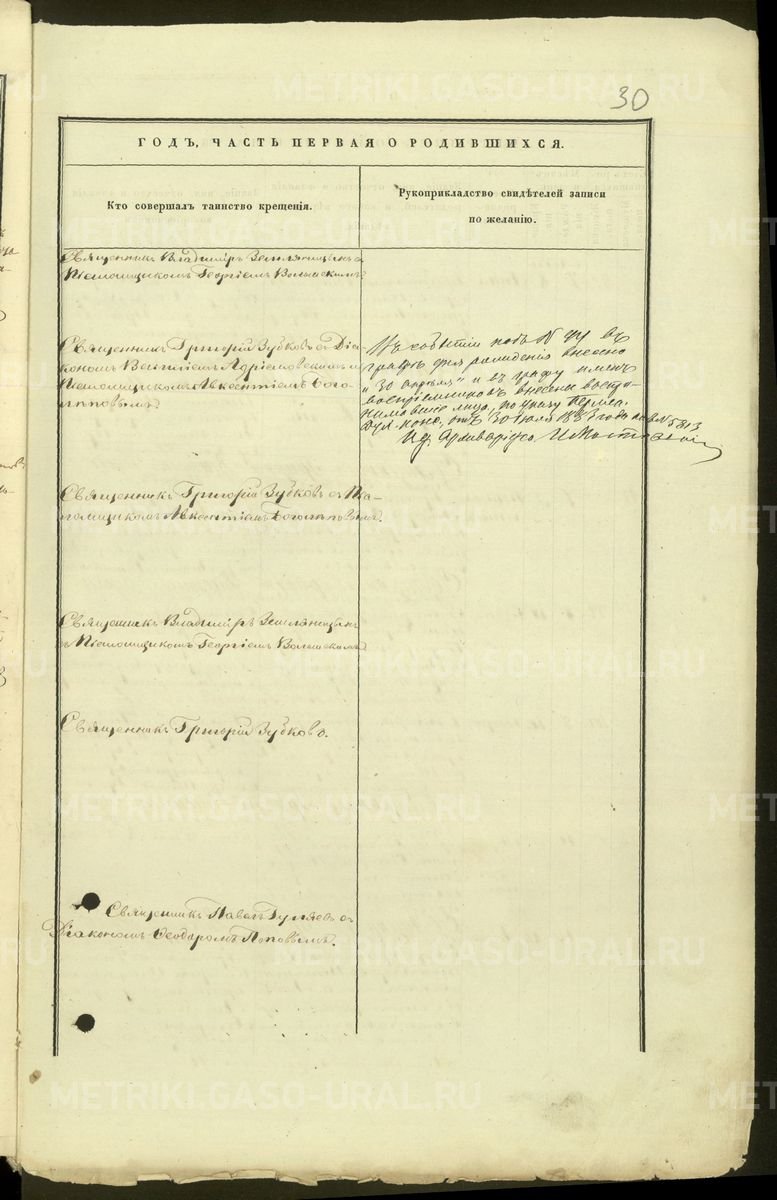 30
ГОДЪ, ЧАСТЬ ПЕРВАЯ О РОДИВШИХСЯ.
Кто совершалъ таинство крещенія.
Рукоприкладство свидѣтелей записи
по желанію.
Священникъ Владиміръ Земляницынъ съ
Псаломщикомъ Георгіемъ
Священникъ Григорій Зубковъ съ Діа-
кономъ и
Псаломщикомъ Авксентіемъ Бого-
лѣповымъ.
Въ событіи подъ № въ
графѣ дня рожденія внесено
"30 апрѣля" и въ графу именъ
воспріемниковъ внесены воспри-
нимавшіе лица, по указу Перм.
Дух. конс. отъ 30 1893 года за № 5813
Архиваріусъ
Священникъ Григорій Зубковъ съ Пса-
ломщикомъ Авксентіемъ Боголѣповымъ.
Священникъ Владиміръ Земляницынъ
съ Псаломщикомъ Георгіемъ
Священникъ Григорій Зубковъ.
Священникъ Павелъ Гуляевъ съ
Діакономъ Ѳеодоромъ Поповымъ.
METRIKI.GASO-URAL.RU